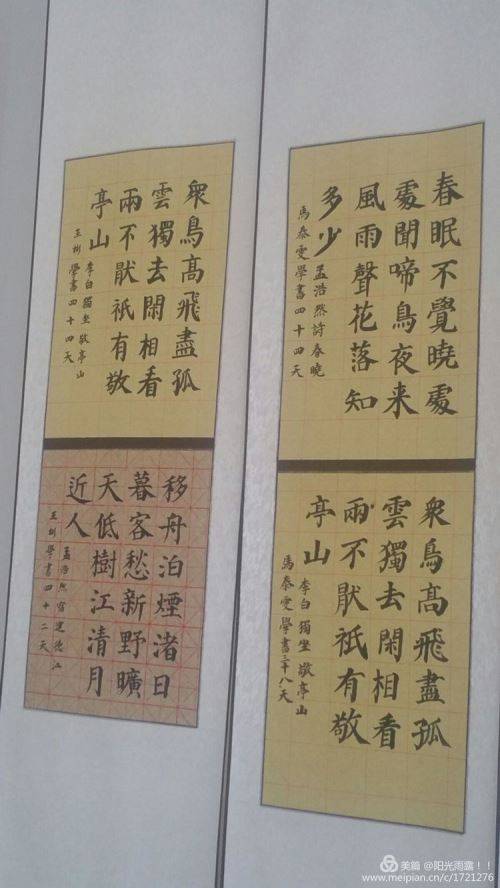 春眠不覺曉處
處聞啼鳥夜来
風雨聲花落知
多少
孟浩然詩春曉
馬泰雯學書四十四天
衆鳥髙飛盡孤
雲獨去閑相看
兩不厭祇有敬
亭山
李白獨坐敬亭山
馬泰雯學書三十八天
衆鳥髙飛盡孤
雲獨去閑相看
兩不厭祇有敬
亭山
李白獨坐敬亭山
王 學書四十四天
移舟泊煙渚日
暮客愁新野曠
天低樹江清月
近人
孟浩然宿建德江
王 學書四十二天
美篇 @阳光雨露！！
www.meipian.cn/c/1721276